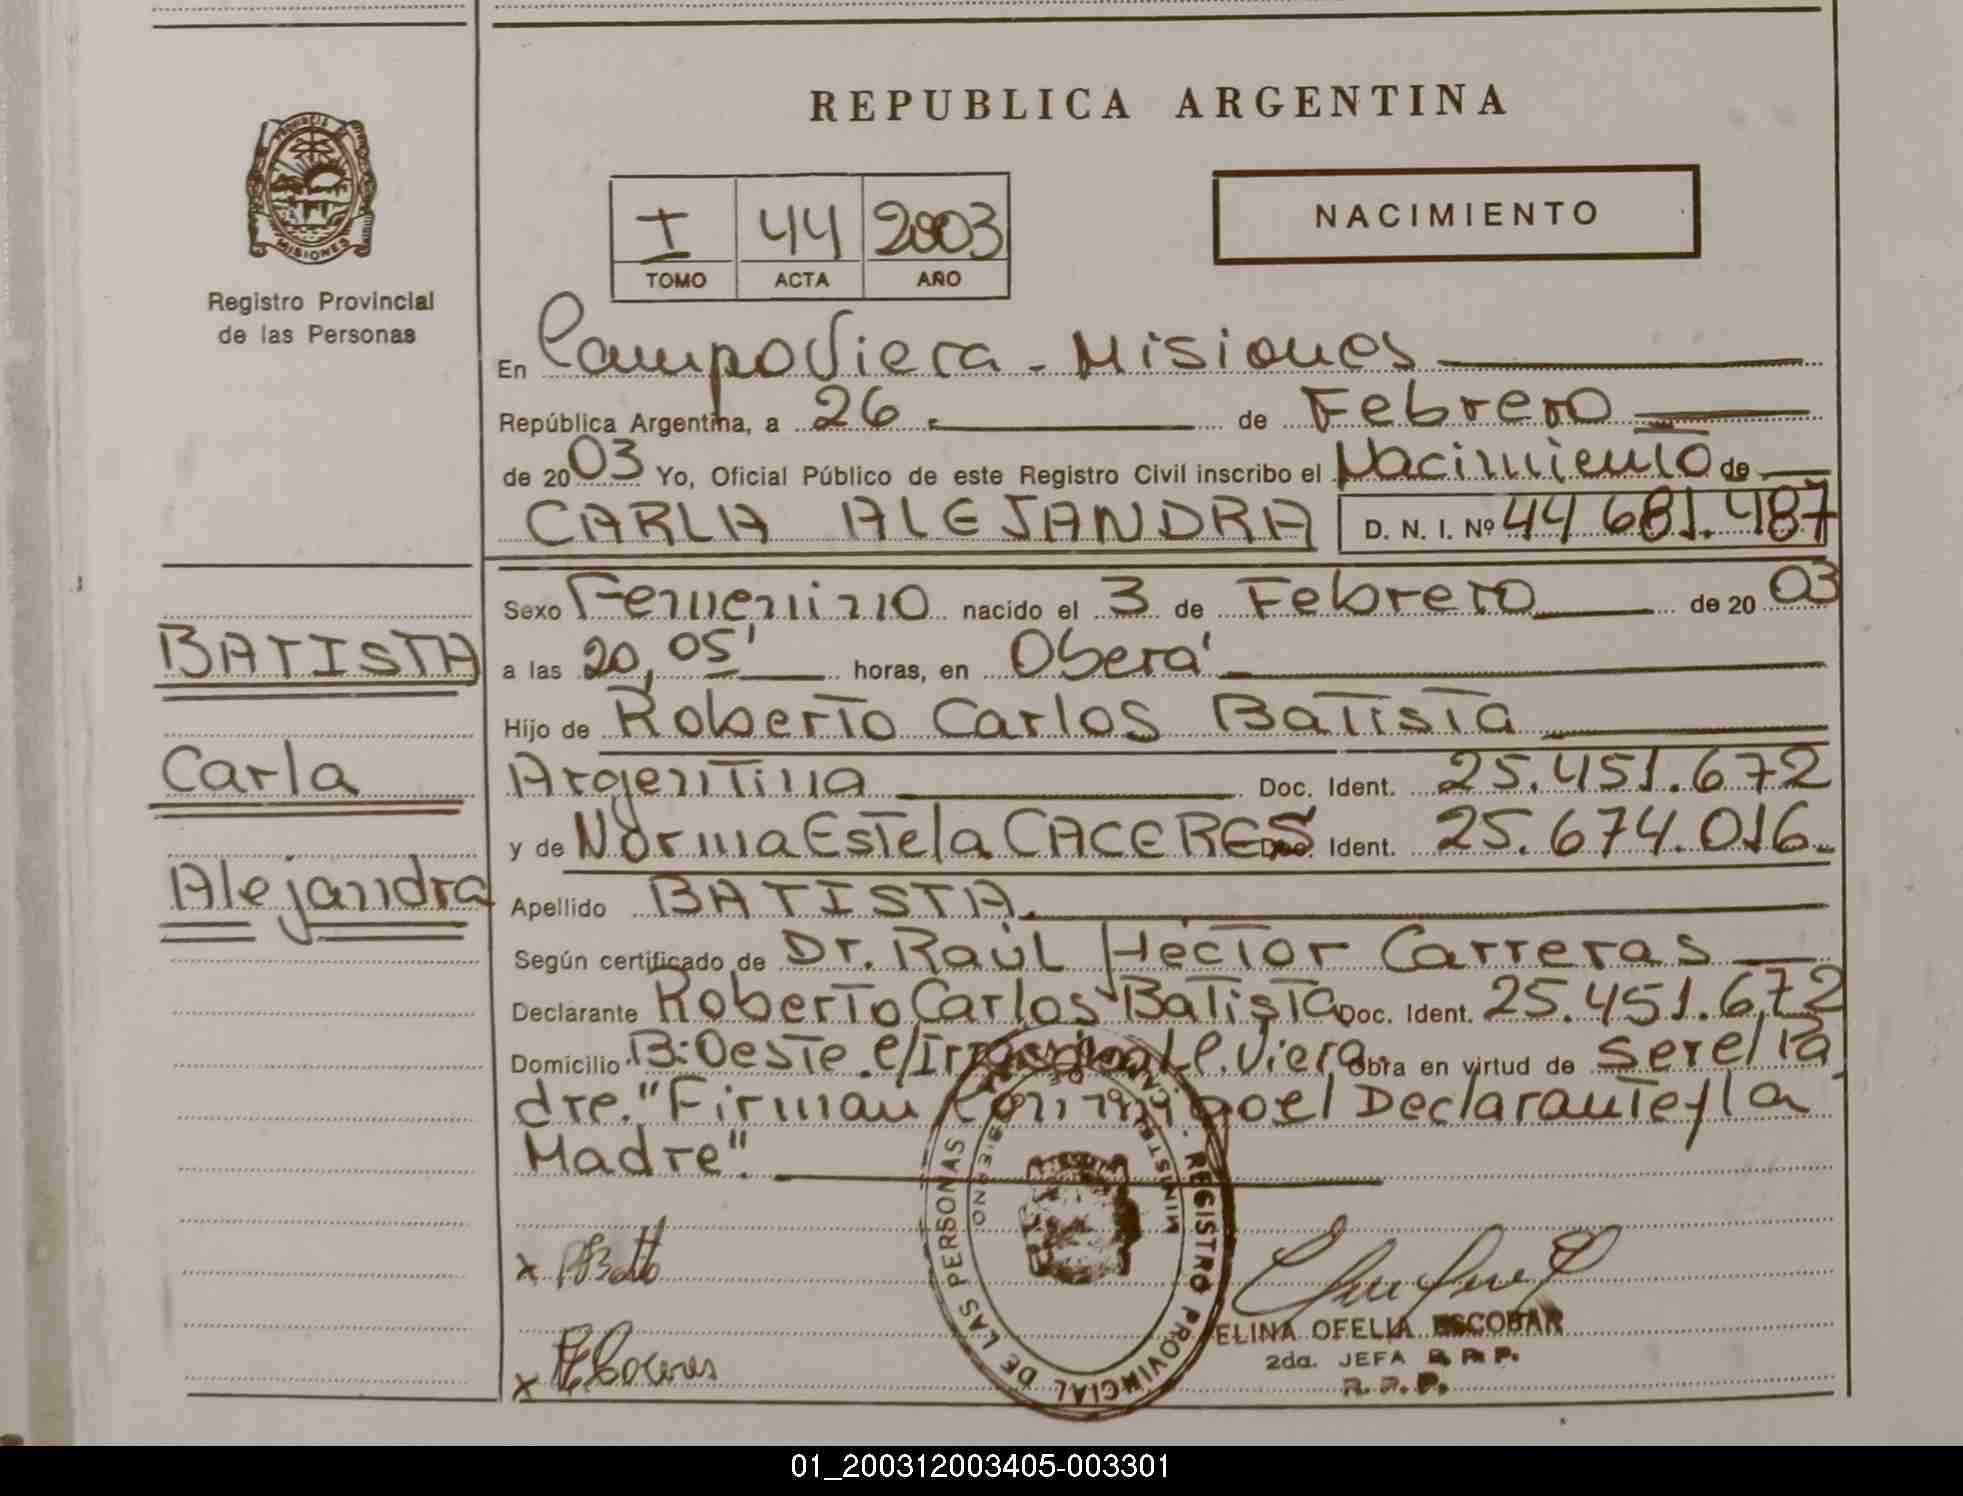 REPUBLICA ARGENTINA
PROVINCIA DE
MISIONES
Registro Provincial
de las Personas
I 44 2003
TOMO ACTA AÑO
NACIMIENTO
En Campo Viera - Misiones
República Argentina, a 26 de Febrero
de 2003 Yo, Oficial Público de este Registro Civil inscribo el Nacimiento de
CARLA ALEJANDRA D. N. I. Nº 44 681.487
Sexo Femenino nacido el 3 de Febrero de 2003
BATISTA
a las 20,05' horas, en Oberá
Hijo de Roberto Carlos Batista
Carla
Argentina Doc. Ident. 25.451.672
y de Norma Estela CACERES Doc. Ident. 25.674.016
Alejandra
Apellido BATISTA
Según certificado de Dr. Raúl Hector Carreras
Declarante Roberto Carlos Batista Doc. Ident. 25.451.672
Domicilio B: Oeste C. Viera Obra en virtud de ser el Pa
dre. "Firman el Declarante y la
Madre".
REGISTRO PROVINCIAL DE LAS PERSONAS
ELINA OFELIA ESCOBAR
2da. JEFA R. P. P.
R. P. P.
01_200312003405-003301